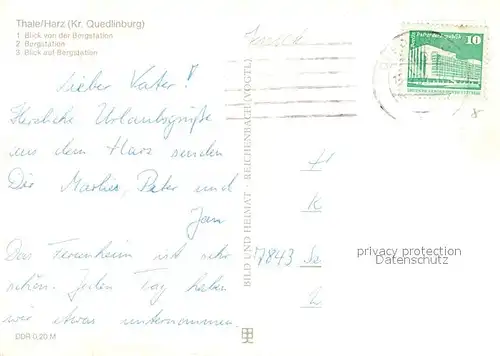 Thale/Harz (Kr. Quedlinburg)
1. Blick von der Bergstation
2. Bergstation
3. Blick auf Bergstation
Zurück
10
Lieber Vater!
Herzliche Urlaubsgrüße
aus dem Harz senden
Dir Marlies, Peter und
Jan
Das Ferienheim ist sehr
schön. Jeden Tag haben
wir etwas unternommen.
DDR 0,20 M
BILD UND HEIMAT · REICHENBACH (VOGTL)
H
K
7843
Z
privacy protection
Datenschutz